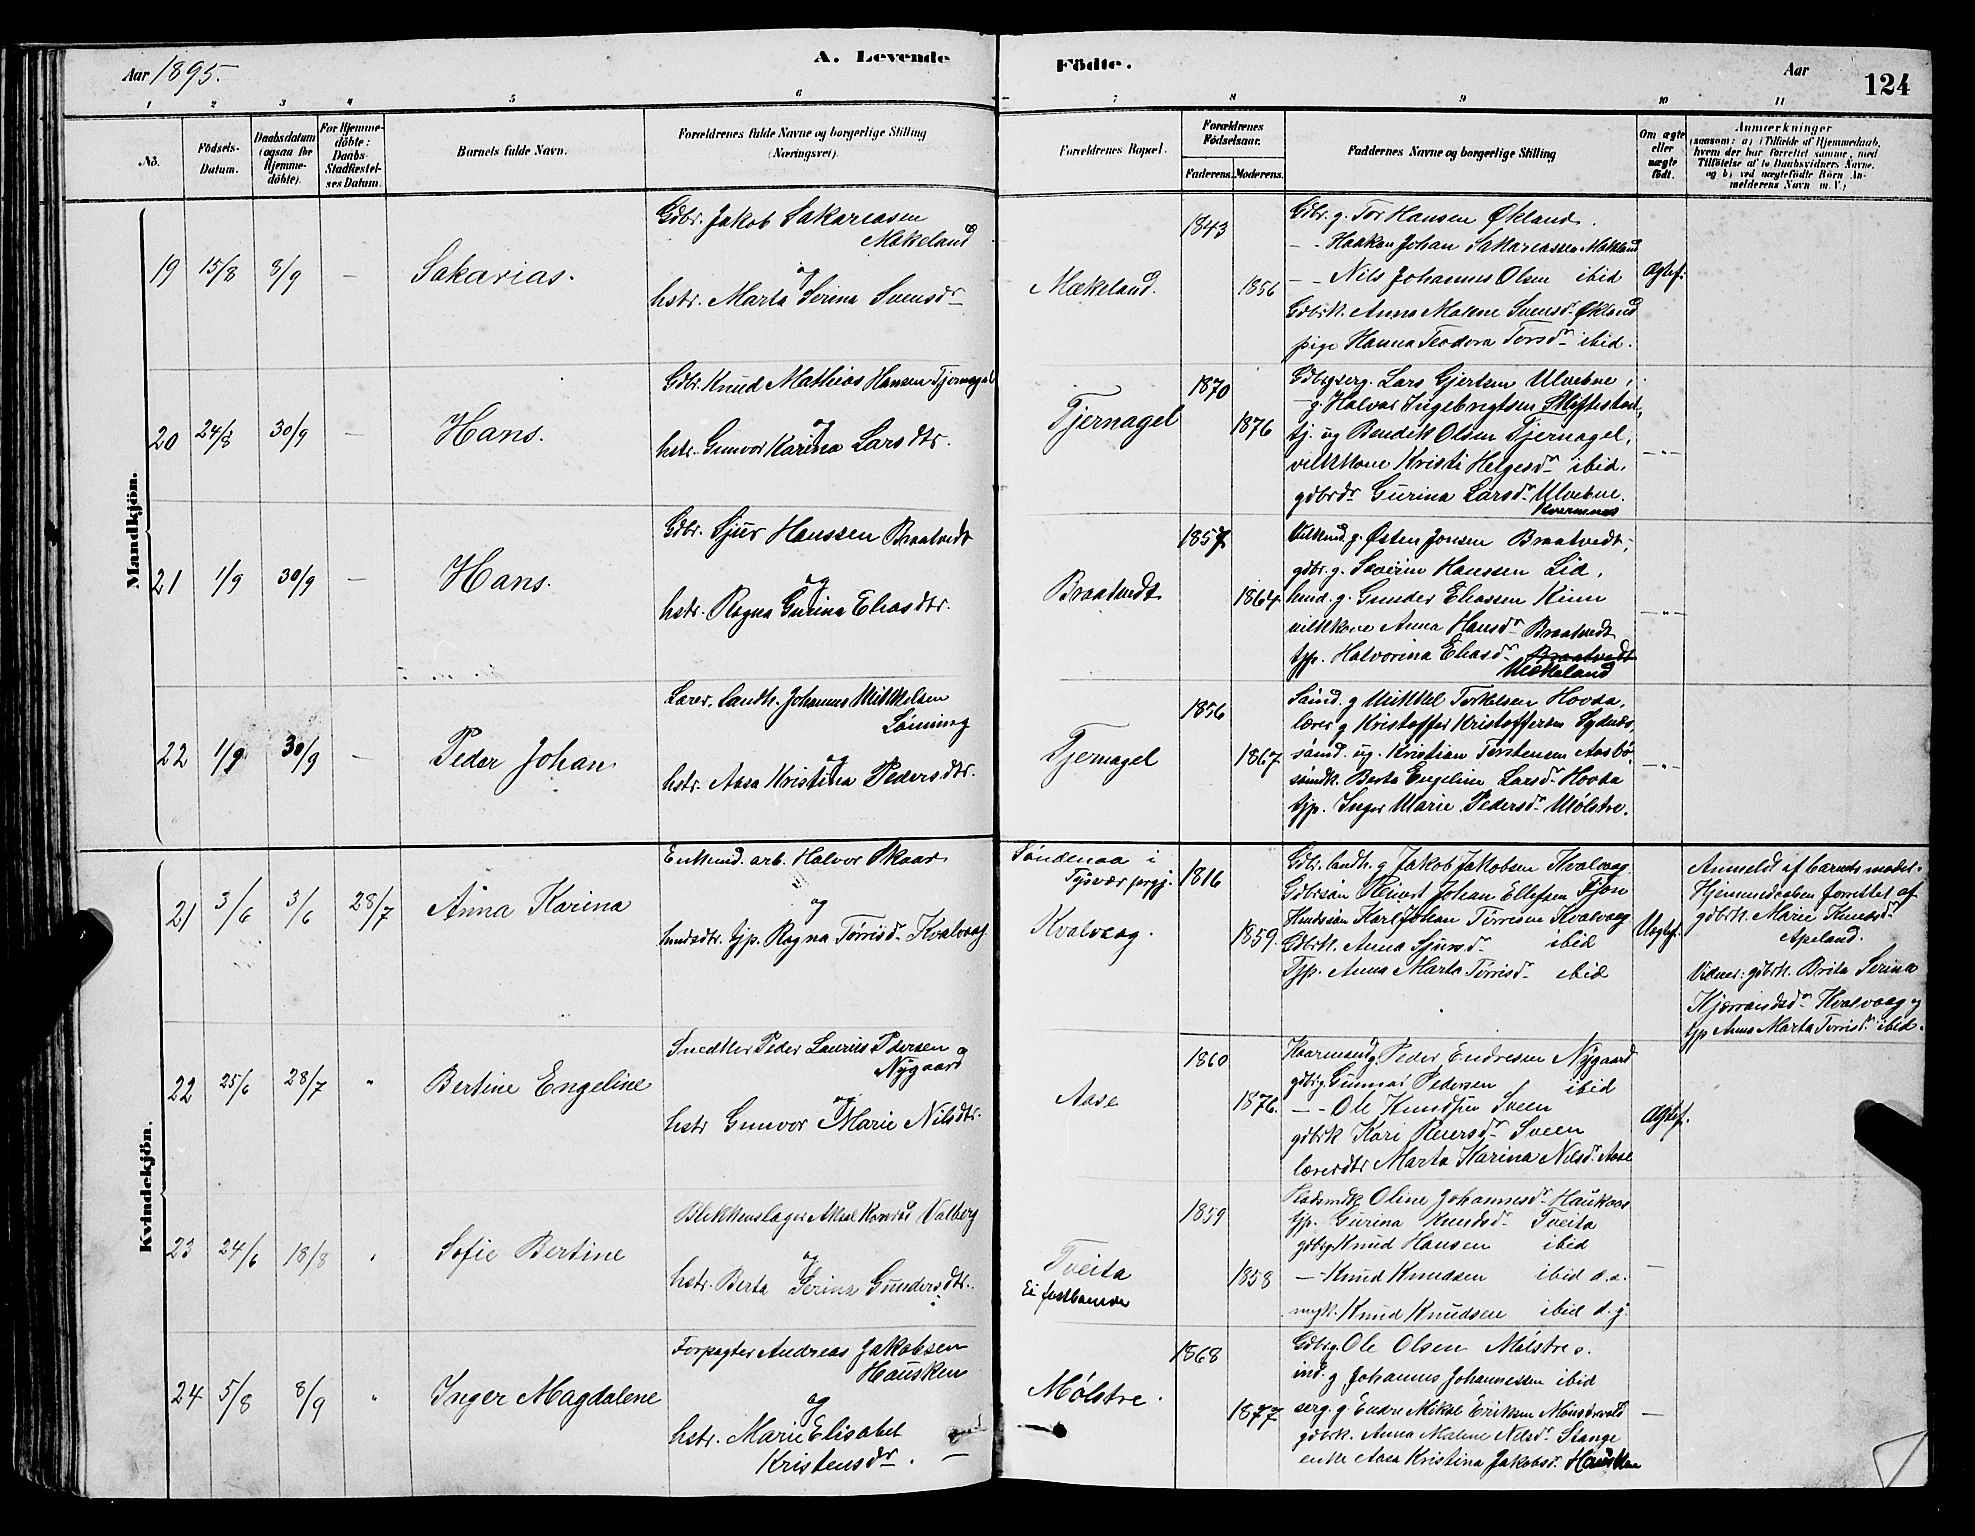 Aar 1895.
A. Levende
Födte.
Aar
124
1 2 3 4 5 6 7 8 9 10 11
No.
Födsels-
Datum.
Daabsdatum
(ogsaa for
Hjemme-
döbte).
For Hjemme-
döbte:
Daabs-
Stadfæstel-
ses Datum.
Barnets fulde Navn.
Forældrenes fulde Navne og borgerlige Stilling
(Næringsvei).
Forældrenes Bopæl.
Forældrenes
Födselsaar.
Faderens. Moderens.
Faddernes Navne og borgerlige Stilling
Om ægte
eller
uægte
födt.
Anmærkninger
(saasom: a) i Tilfælde af Hjemmedaab,
hvem der har forrettet samme, med
Tilföielse af to Daabsvidners Navne.
og b) ved uægtefödte Börn An-
melderens Navn m. V.)
Mandkjön.
19 15/8 8/9 — Sakarias.
Gdbr. Jakob Sakariasen
Mækeland
og
hstr. Marta Serina Svensdr
Mækeland.
1843
1856
Gdbr. g. Tor Hansen Økland.
- - Haakon Johan Sakariassen Mækland
- - Nils Johannes Olsen ibid
Gdbrk. Anna Malene Svensdr Økland
pige Hanna Teodora Torsdr ibid.
Ægtef.
20 24/8 30/9 — Hans.
Gdbr. Knud Mathias Hansen Tjernagel
og
hstr. Gunvor Karina Larsdtr.
Tjernagel
1870
1876
Gdbrg serg. Lars Gjertsen Ulvebne,
- g. Halvar Ingebrigtsen
tj. ug Bendik Olsen Tjernagel,
vilkkone Kristi Helgesdr ibid,
gdbrdr Gurina Larsdr Ulvebne.
Kvernnes
-„-
21 1/9 30/9 — Hans.
Gdbr. Sjur Hanssen Braatvedt
og
hstr. Ragna Gurina Eliasdtr.
Braatvedt
1857
1864
Vilkmd. g. Østen Jonsen Braatvedt,
gdbr. g. Severin Hanssen Lid,
hmd. g. Gunder Eliassen Kinn
vilkkone Anna Hansdr Braatvedt
tjp. Halvorina Eliasdr Braatvedt
Mækeland
-„-
22 1/9 30/9 — Peder Johan
Lærer, Landh. Johannes Mikkelsen
Lønning
og
hstr. Aasa Kristina Pedersdtr.
Tjernagel
1856
1867
Sømd. g Mikkel Torkelsen Hovda,
lærer g Kristoffer Kristoffersen Sydnes,
sømd. ug. Kristian Torstensen Aasbø,
sømdk. Berta Engeline Larsdr Hovda
tjp. Inger Marie Pedersdr Mølstre.
-„-
Kvindekjön.
21 3/6 3/6 28/7 Anna Karina
Enkemd. arb. Halvor Skaar
og
husmdtr. tjp. Ragna Tørrisdr Kvalvaag
Søndenaa i
Tysvær prgj.
Kvalvaag.
1816
1859.
Gdbr. landh. g Jakob Jakobsen Kvalvaag
Gdbrsøn Sivert Johan Ellefsen Fjon
Hmdssøn Karl Johan Tørresen Kvalvaag
Gdbrk. Anna Sjursdr ibid
Tjp. Anna Marta Tørrisdr ibid
Uægtef.
Anmeldt af barnets moder.
Hjemmedaaben forrettet af
gdbrk. Marie Knudsdr
Apeland.
Vidner: gdbrk. Brita Serina
Kjærrandsdr Kvalvaag og
tjp Anna Marta Tørrisdr ibid.
22 25/6 28/7 „ Bertine Engeline
Snedker Peder Laurits Pedersen
Nygaard
og
hstr Gunvor Marie Nilsdtr.
Aase
1860
1876.
Kaarmand g. Peder Endresen Nygaard
gdbrg Gunnar Pedersen ibid
- - Ole Knudsen Sveen
gdbrk Kari Reiersdr Sveen
lærerdtr Marta Karina Nilsdr Aase
Ægtef.
23 24/6 18/8 „ Sofie Bertine
Blikkenslager Aksel Konrad Valberg
og
hstr. Berta Serina Gundersdtr.
Tveita
Ei fastboende
1859
1858
Pladsmdk Oline Johannesdr Haukaas
tjp. Gurina Knudsdr Tveita
gdbrg Knud Hansen ibid
- Knud Knudsen ibid d. æ.
ungk. Knud Knudsen ibid d. y.
—
24 5/8 8/9 „ Inger Magdalene
Forpagter Andreas Jakobsen
Hausken
og
hstr. Marie Elisabet
Kristensdr.
Mølstre.
1868
1877
Gdbrg Ole Olsen Mølstre s.
ind. g Johannes Johannessen ibid
serg. g Endre Mikal Eriksen
gdbrk. Anna Malene Nilsdr Stange
enke Aasa Kristina Jakobsdr Hausken
—